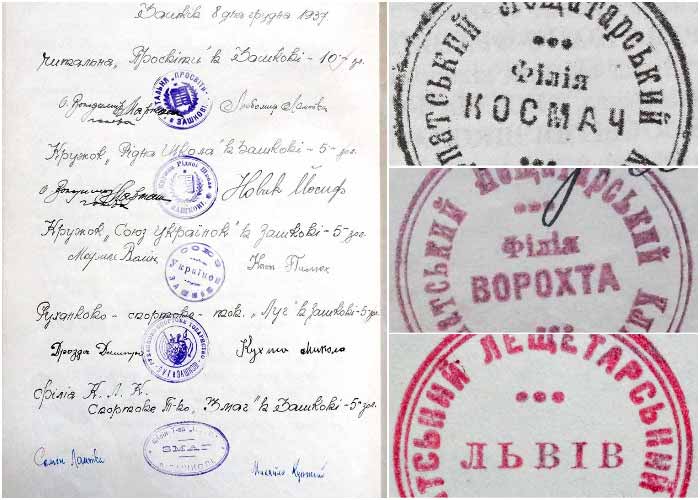 Зашків 8 дня грудня 1937
Читальня „Просвіти" в Зашкові – 10 – зл.
ЧИТАЛЬНЯ „ПРОСВІТИ"
в ЗАШКОВІ
Кружок „Рідна Школа" в Зашкові – 5 – зол.
Кружок Рідної Школи
ЗАШКОВІ
Новик Йосиф
Кружок „Союз Українок" в Зашкові – 5 – зол.
СОЮЗ
Українок
ЗАШКІВ
Руханково – спортове – тов. „Луг" в Зашкові – 5 – зол.
Дрозда Дмитро Кухта Микола
філія К. Л. К.
Спортове Т-во „Змаг" в Зашкові – 5 – зол.
ЗМАГ
ЗАШКОВІ
ПАТСЬКИЙ ЛЕЩЕТАРСЬКИЙ К
Філія
КОСМАЧ
ПАТСЬКИЙ ЛЕЩЕТАРСЬКИЙ КЛ
Філія
ВОРОХТА
ПАТСЬКИЙ ЛЕЩЕТАРСЬКИЙ
ЛЬВІВ